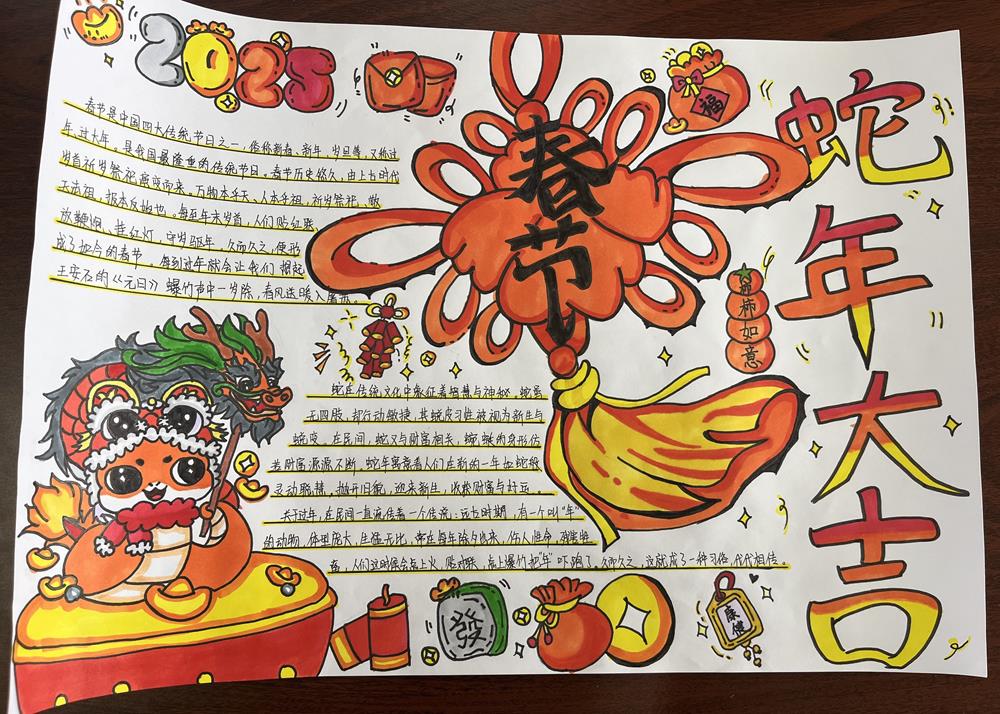 2025
福
春节
蛇年大吉
春节是中国四大传统节日之一，俗称新春、新年、岁旦等，又称过
年、过大年。是我国最隆重的传统节日。春节历史悠久，由上古时代
岁首祈岁祭祀演变而来。万物本乎天、人本乎祖，祈岁祭祀、敬
天法祖，报本反始也。每至年末岁首，人们贴红联、
放鞭炮、挂红灯，守岁驱年，久而久之，便形
成了如今的春节。每到过年就会让我们想起
王安石的《元日》爆竹声中一岁除，春风送暖入屠苏。
柿柿如意
蛇在传统文化中象征着智慧与神秘。蛇虽
无四肢，却行动敏捷，其蜕皮习性被视为新生与
蜕变。在民间，蛇又与财富相关，蜿蜒的身形仿
若财富源源不断。蛇年寓意着人们在新的一年如蛇般
灵动聪慧，抛开旧貌，迎来新生，收获财富与好运。
关于过年，在民间一直流传着一个传说：远古时期，有一个叫“年”
的动物，体型庞大，凶猛无比，常在每年除夕出来，伤人性命，
，人们这时候会点上火，贴对联，点上爆竹把“年”吓跑了，久而久之，这就成了一种习俗，代代相传。
發
康健